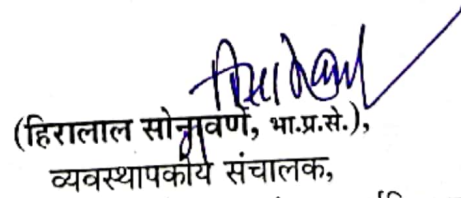 (हिरालाल सोनवणे, भा.प्र.से.),
व्यवस्थापकीय संचालक,